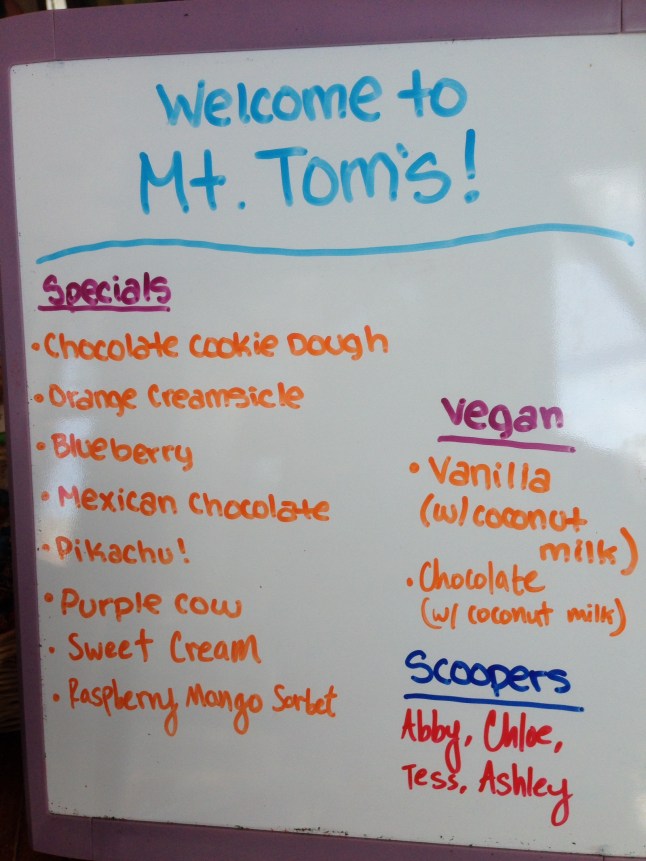 Welcome to
Mt. Tom's!
Specials
• Chocolate Cookie Dough
• Orange Creamsicle
• Blueberry
• Mexican Chocolate
• Pikachu!
• Purple Cow
• Sweet Cream
• Raspberry Mango Sorbet
Vegan
• Vanilla
(w/ coconut
milk)
• Chocolate
(w/ coconut milk)
Scoopers
Abby, Chloe,
Tess, Ashley